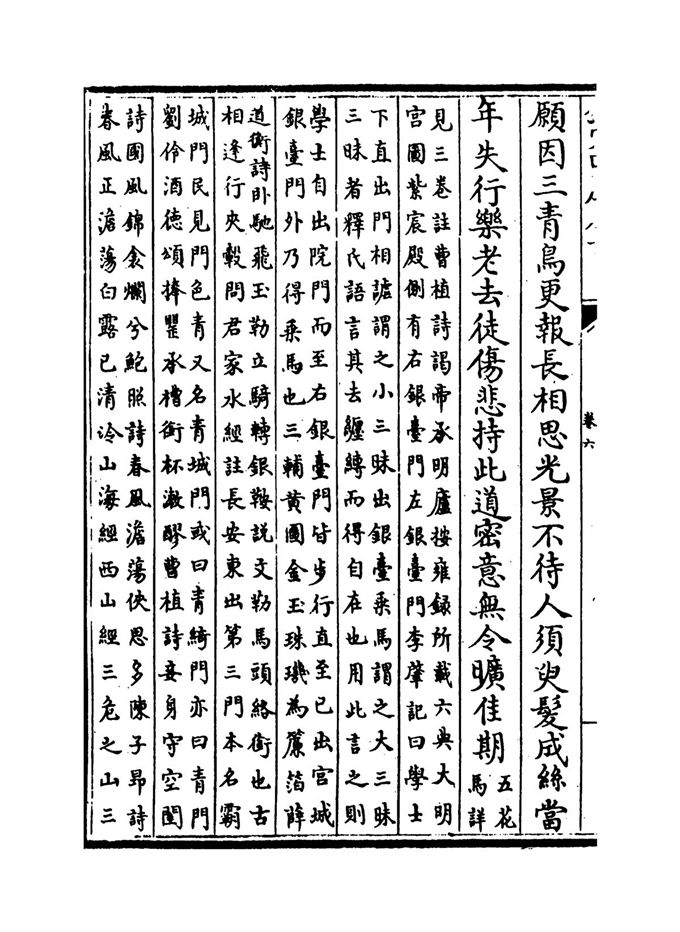 卷六
願因三青鳥更報長相思光景不待人須臾髮成絲當
年失行樂老去徒傷悲持此道密意無令曠佳期
五花
馬詳
見三卷註曹植詩謁帝承明廬按雍録所載六典大明
宮圖紫宸殿側有右銀臺門左銀臺門李肇記曰學士
下直出門相謔謂之小三昧出銀臺乘馬謂之大三昧
三昧者釋氏語言其去纏縛而得自在也用此言之則
學士自出院門而至右銀臺門皆步行直至已出宮城
銀臺門外乃得乘馬也三輔黃圖金玉珠璣為簾箔薛
道衡詩卧馳飛玉勒立騎轉銀鞍説文勒馬頭絡銜也古
相逢行夾轂問君家水經註長安東出第三門本名霸
城門民見門色青又名青城門或曰青綺門亦曰青門
劉伶酒徳頌捧甖承槽銜杯漱醪曹植詩妾身守空閨
詩國風錦衾爛兮鮑照詩春風澹蕩俠思多陳子昻詩
春風正澹蕩白露已清泠山海經西山經三危之山三